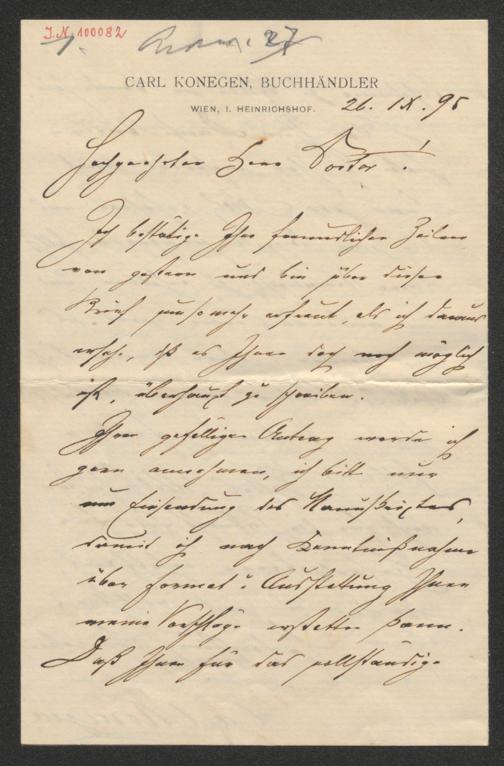 I.N. 100082
27
CARL KONEGEN, BUCHHÄNDLER
WIEN, I. HEINRICHSHOF.
26. IX. 95
Hochgeehrter Herr Doctor!
Ich bestätige Ihre freundlichen Zeilen
von gestern und bin über diesen
Brief umsomehr erfreut, als ich daraus
ersehe, daß es Ihnen doch noch möglich
ist, überhaupt zu schreiben.
Ihren gefälligen Antrag werde ich
gern annehmen, ich bitte nur
um Einsendung des Manuskriptes,
damit ich nach Kenntnißnahme
über Format u. Ausstattung Ihnen
meine Vorschläge erstatten kann.
Daß Ihnen für das vollständige